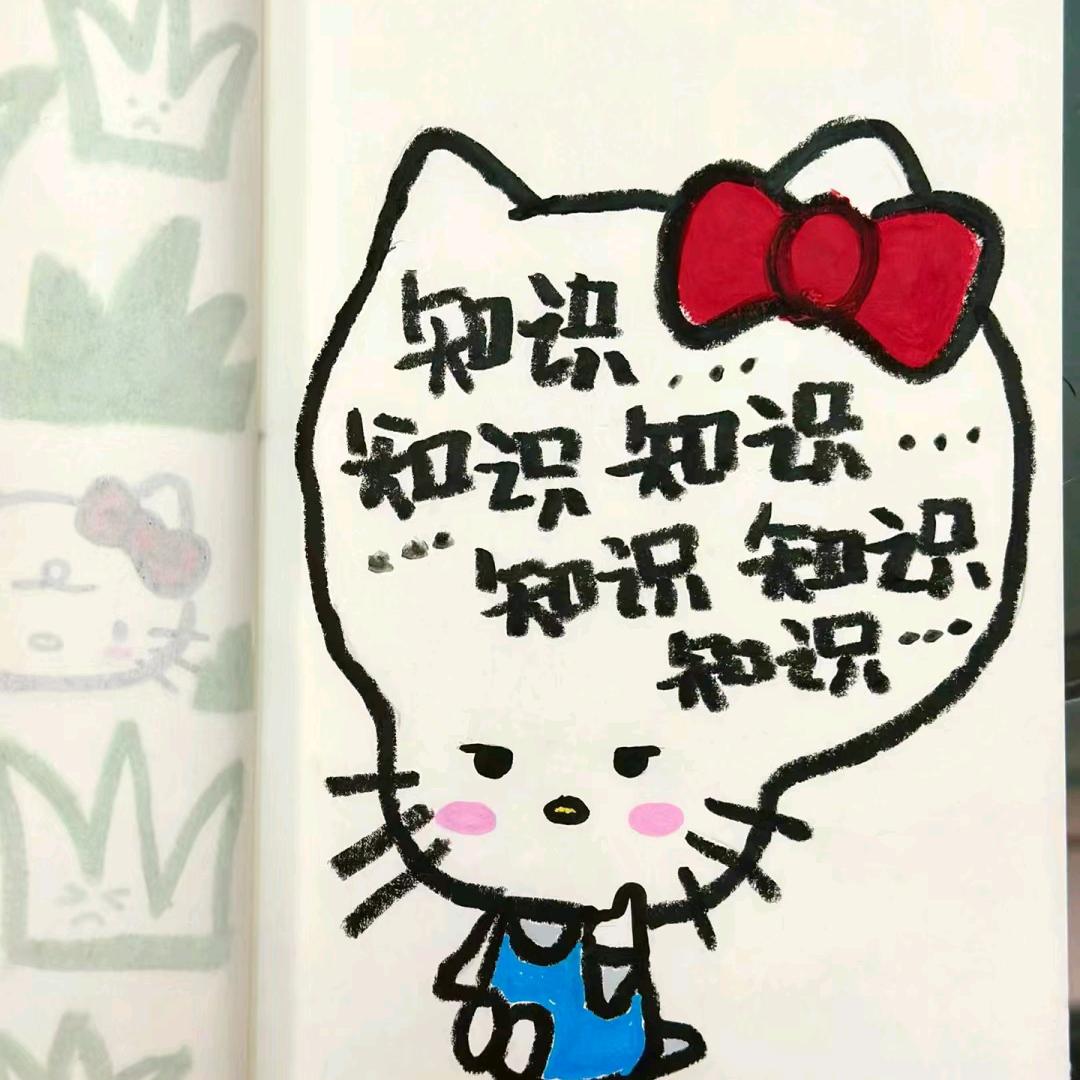 知识...
知识 知识...
...知识 知识
知识...